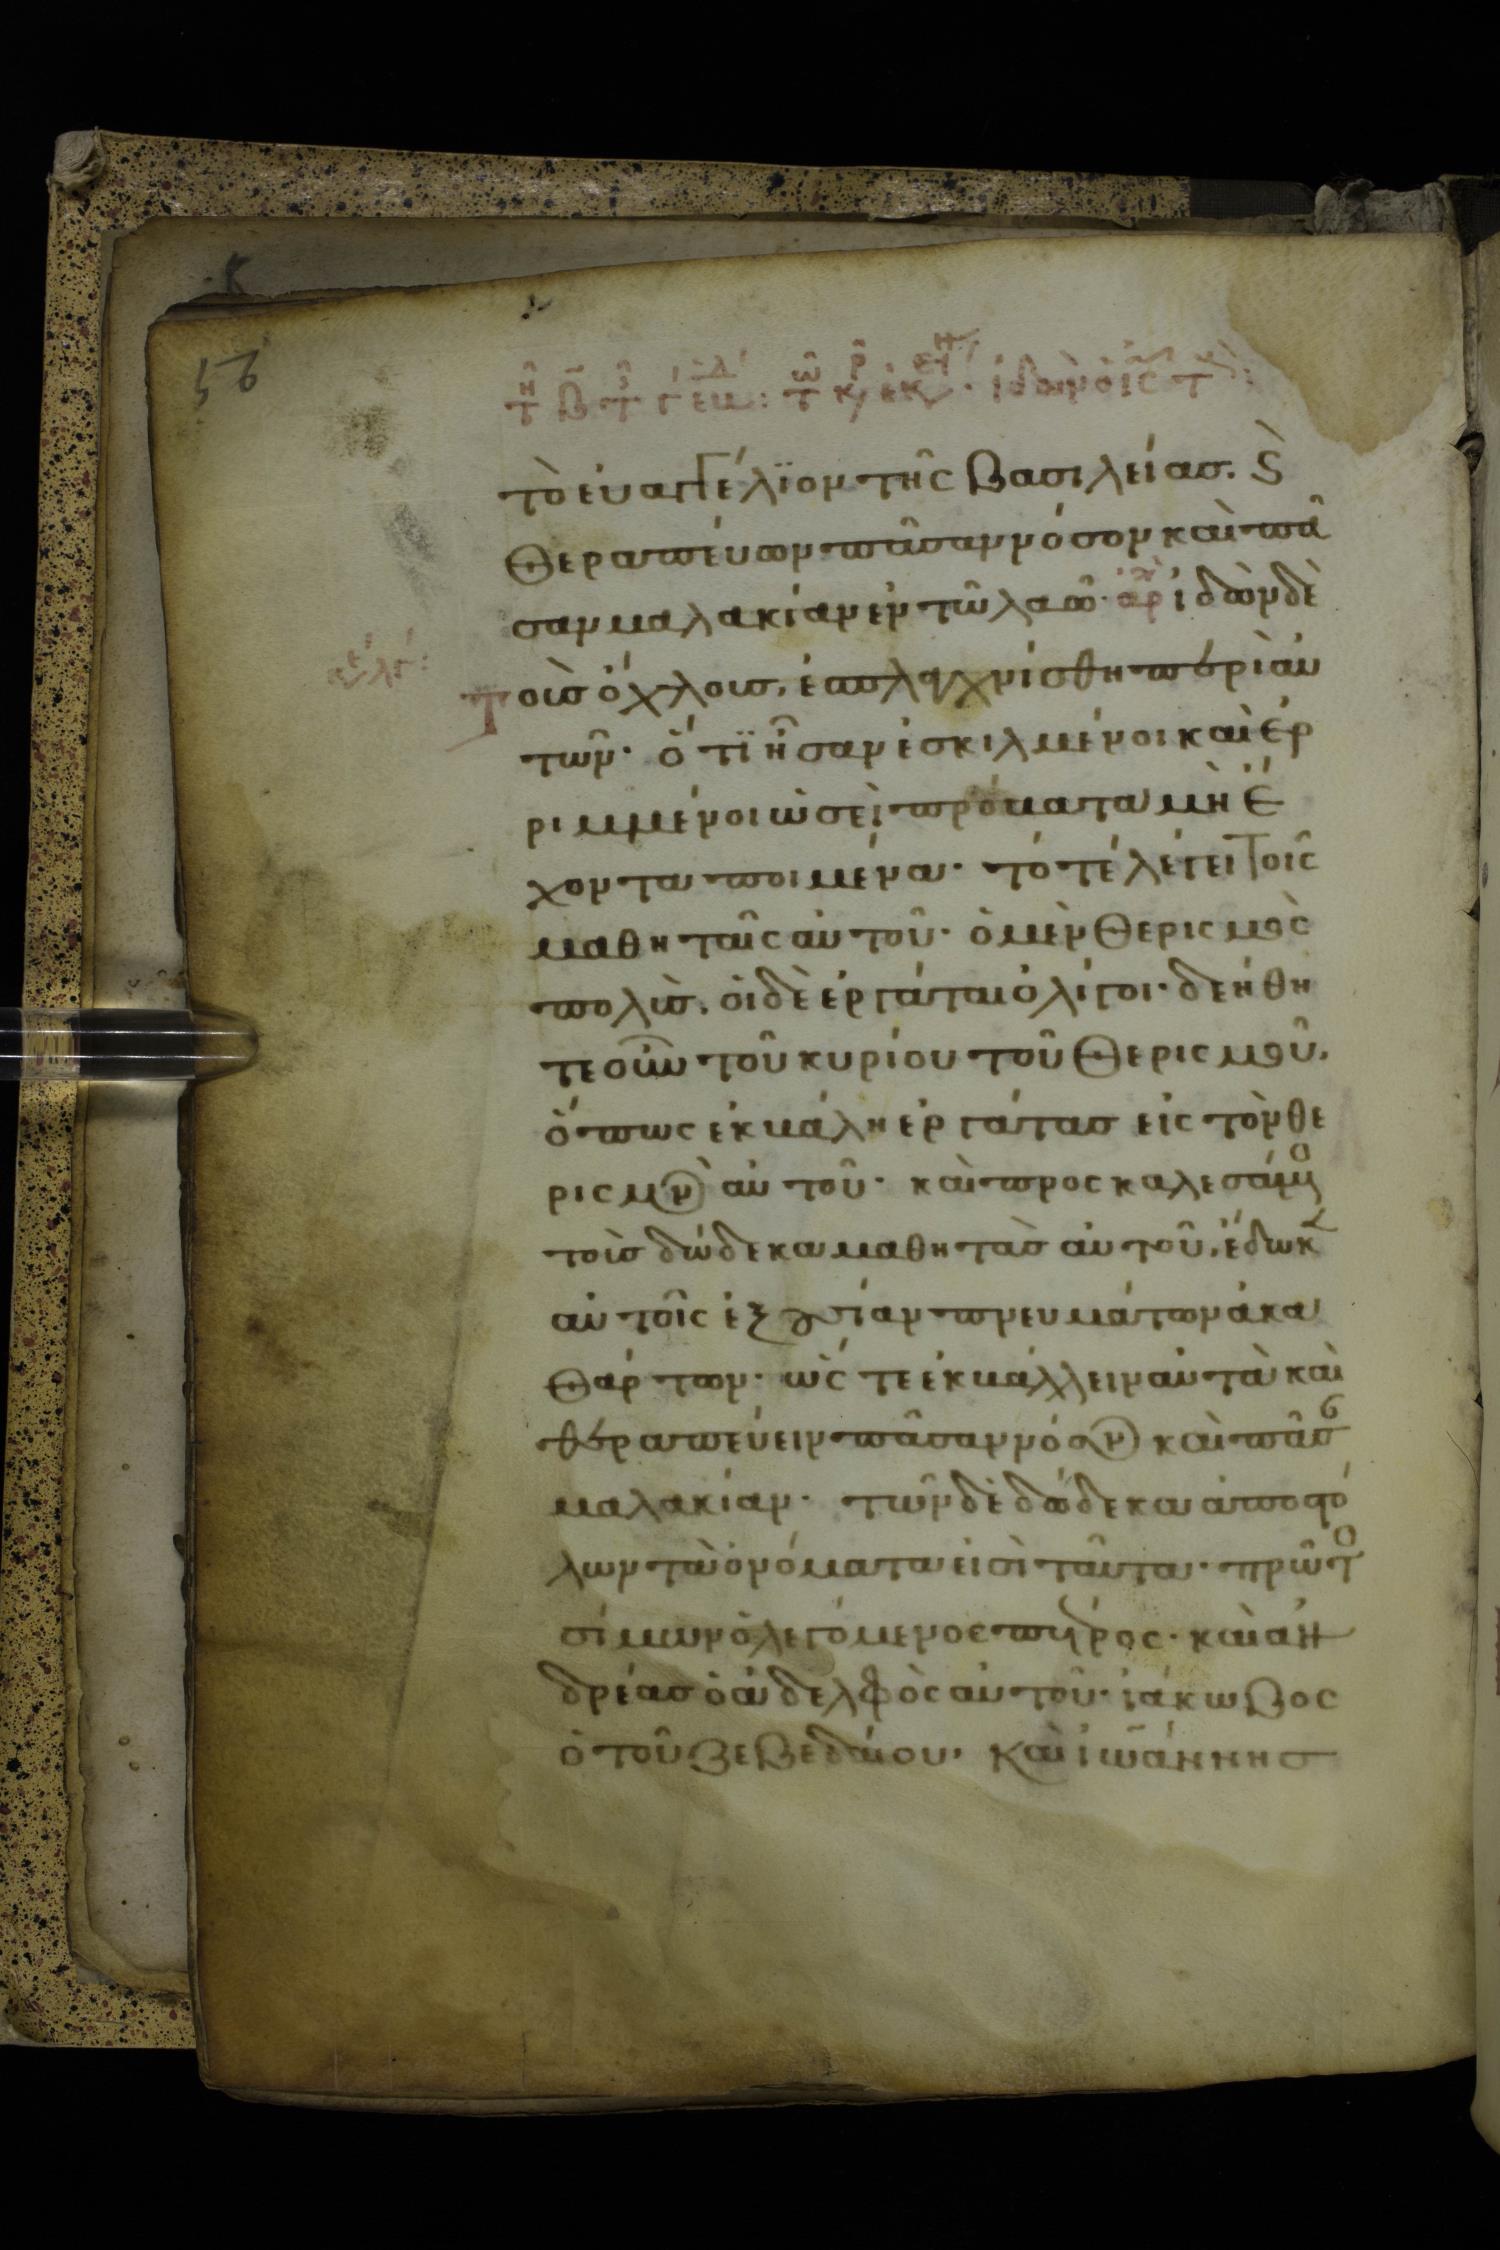 56
τὸ ἐυαγγέλϊον τῆς βασιλείας. ϗ̀
θεραπέυων πᾶσαν νόσον καὶ πᾶ
σαν μαλακίαν ἐν τῶ λαῶ· ἀρ ἰδὼν δὲ
τοὺς ὄχλους, ἐσπλαγχνίσθη περὶ ἀυ
τῶν· ὅτϊ ἦσαν ἐσκυλμένοι καὶ ἐρ
ριμμένοι ὡσεὶ πρόβατα μὴ ἔ
χοντα ποιμένα· τότε λέγει τοῖς
μαθηταῖς ἀυτοῦ· ὁ μὲν θερισμὸς
πολὺς, οἱ δὲ ἐργάται ὀλίγοι· δεήθη
τε οὖν τοῦ κυρίου τοῦ θερισμοῦ,
ὅπως ἐκβάλη ἐργάτας εἰς τὸν θε
ρισμὸν ἀυτοῦ· καὶ προσκαλεσάμενο
τοὺς δώδεκα μαθητὰς ἀυτοῦ, ἔδωκ
ἀυτοῖς ἐξουσίαν πνευμάτων ἀκα
θάρτων· ὥστε ἐκβάλλειν ἀυτὰ καὶ
θεραπέυειν πᾶσαν νόσον καὶ πᾶσ
μαλακίαν· τῶν δὲ δώδεκα ἀποστό
λων τὰ ὀνόματα εἰσὶ ταῦτα· πρῶτο
σίμων ὁ λεγόμενος πέτρος· καὶ ἀν
δρέας ὁ ἀδελφὸς ἀυτοῦ· ἰάκωβος
ὁ τοῦ ζεβεδαίου, καὶ ἰωάννης